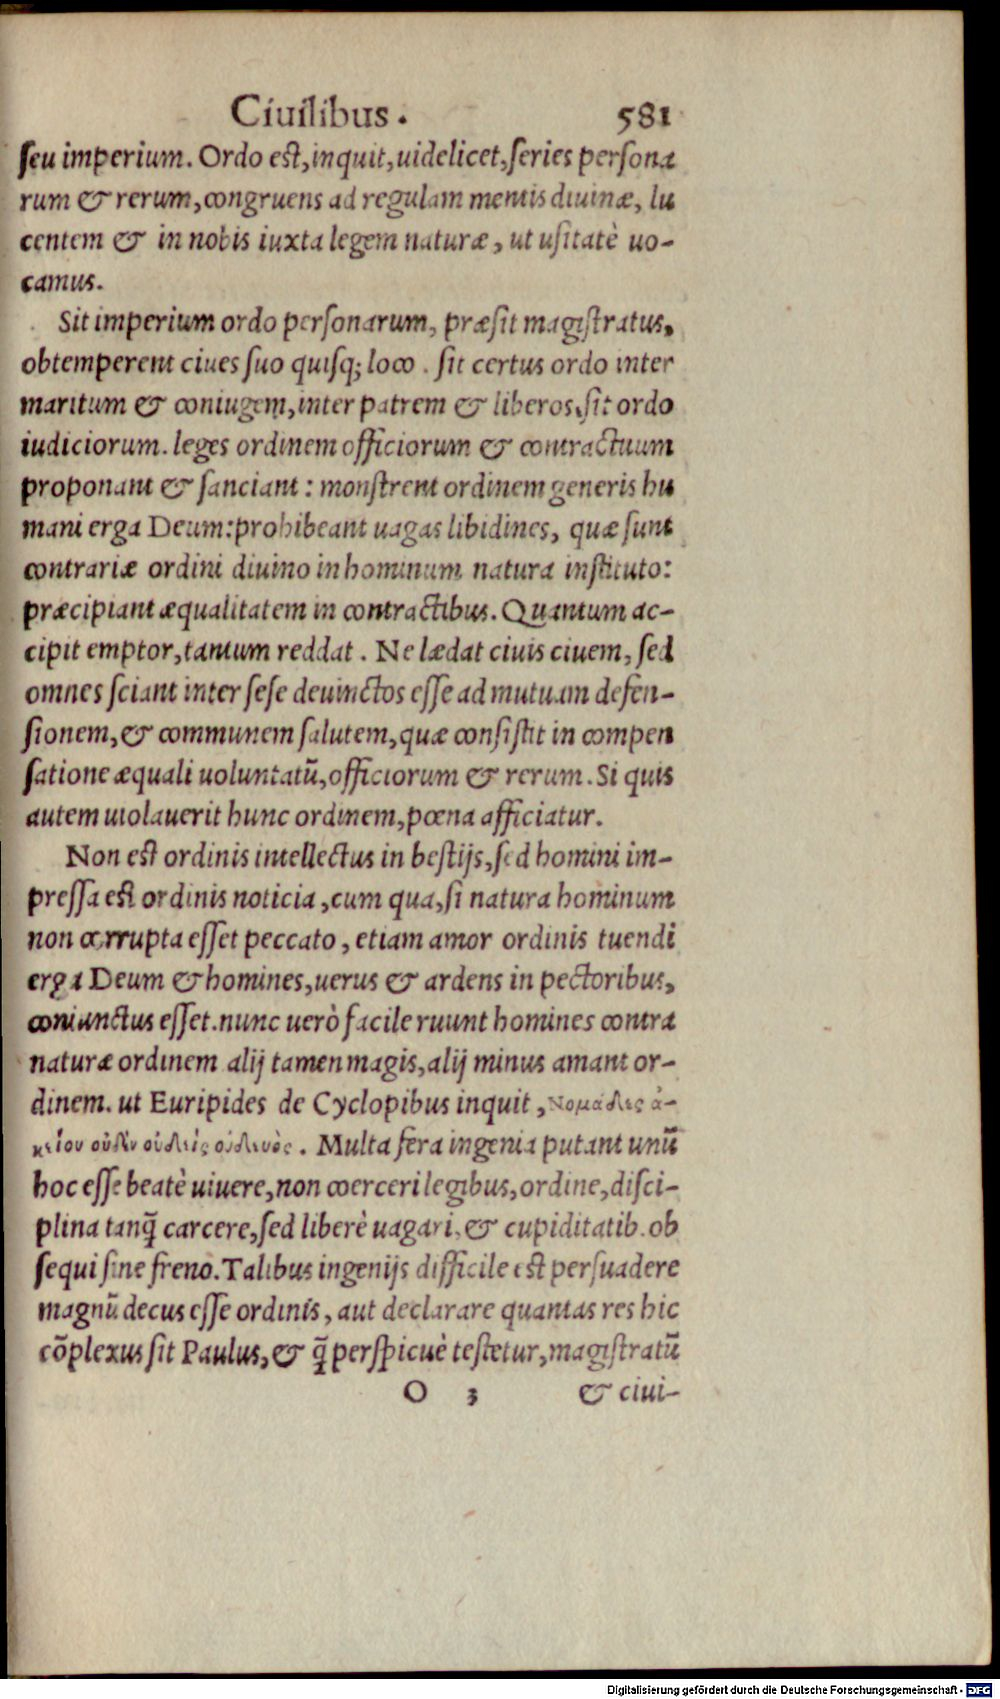 Ciuilibus. 581
seu imperium. Ordo est, inquit, uidelicet, series persona
rum & rerum, congruens ad regulam mentis diuinæ, lu
centem & in nobis iuxta legem naturæ, ut usitatè uo-
camus.
Sit imperium ordo personarum, præsit magistratus,
obtemperent ciues suo quisq; loco. sit certus ordo inter
maritum & coniugem, inter patrem & liberos, sit ordo
iudiciorum. leges ordinem officiorum & contractuum
proponant & sanciant: monstrent ordinem generis hu
mani erga Deum: prohibeant uagas libidines, quæ sunt
contrariæ ordini diuino in hominum natura instituto:
præcipiant æqualitatem in contractibus. Quantum ac-
cipit emptor, tantum reddat. Ne lædat ciuis ciuem, sed
omnes sciant inter sese deuinctos esse ad mutuam defen-
sionem, & communem salutem, quæ consistit in compen
satione æquali uoluntatũ, officiorum & rerum. Si quis
autem uiolauerit hunc ordinem, pœna afficiatur.
Non est ordinis intellectus in bestijs, sed homini im-
pressa est ordinis noticia, cum qua, si natura hominum
non corrupta esset peccato, etiam amor ordinis tuendi
erga Deum & homines, uerus & ardens in pectoribus,
coniunctus esset. nunc uerò facile ruunt homines contra
naturæ ordinem alij tamen magis, alij minus amant or-
dinem. ut Euripides de Cyclopibus inquit, Νομάδες ἀ-
κείον οὐδὲν οὐδεὶς οὐδενὸς. Multa fera ingenia putant unũ
hoc esse beatè uiuere, non coerceri legibus, ordine, disci-
plina tanq̃ carcere, sed liberè uagari, & cupiditatib. ob
sequi sine freno. Talibus ingenijs difficile est persuadere
magnũ decus esse ordinis, aut declarare quantas res hic
cõplexus sit Paulus, & q̃ perspicuè testetur, magistratũ
O 3 & ciui-
Digitalisierung gefördert durch die Deutsche Forschungsgemeinschaft - DFG